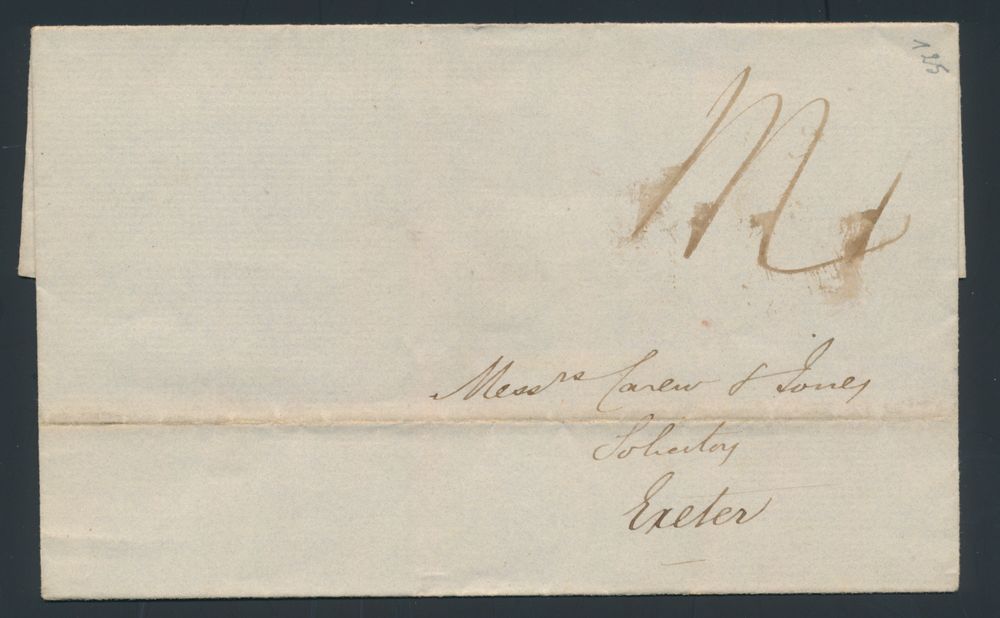 125
Messrs Carew & Jones
Solicitors
Exeter